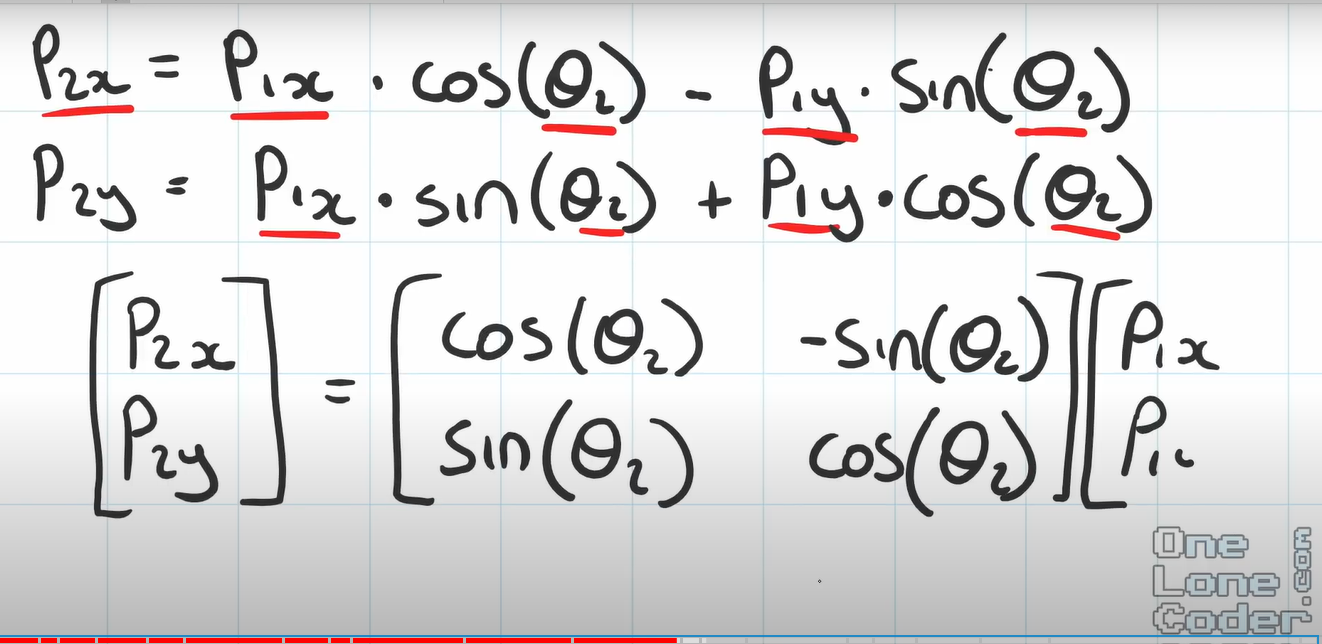 P₂x = P₁x · cos(θ₂) - P₁y · sin(θ₂)
P₂y = P₁x · sin(θ₂) + P₁y · cos(θ₂)
[P₂x] = [cos(θ₂) -sin(θ₂)] [P₁x
[P₂y] [sin(θ₂) cos(θ₂)] [P₁
One
Lone
Coder
.com